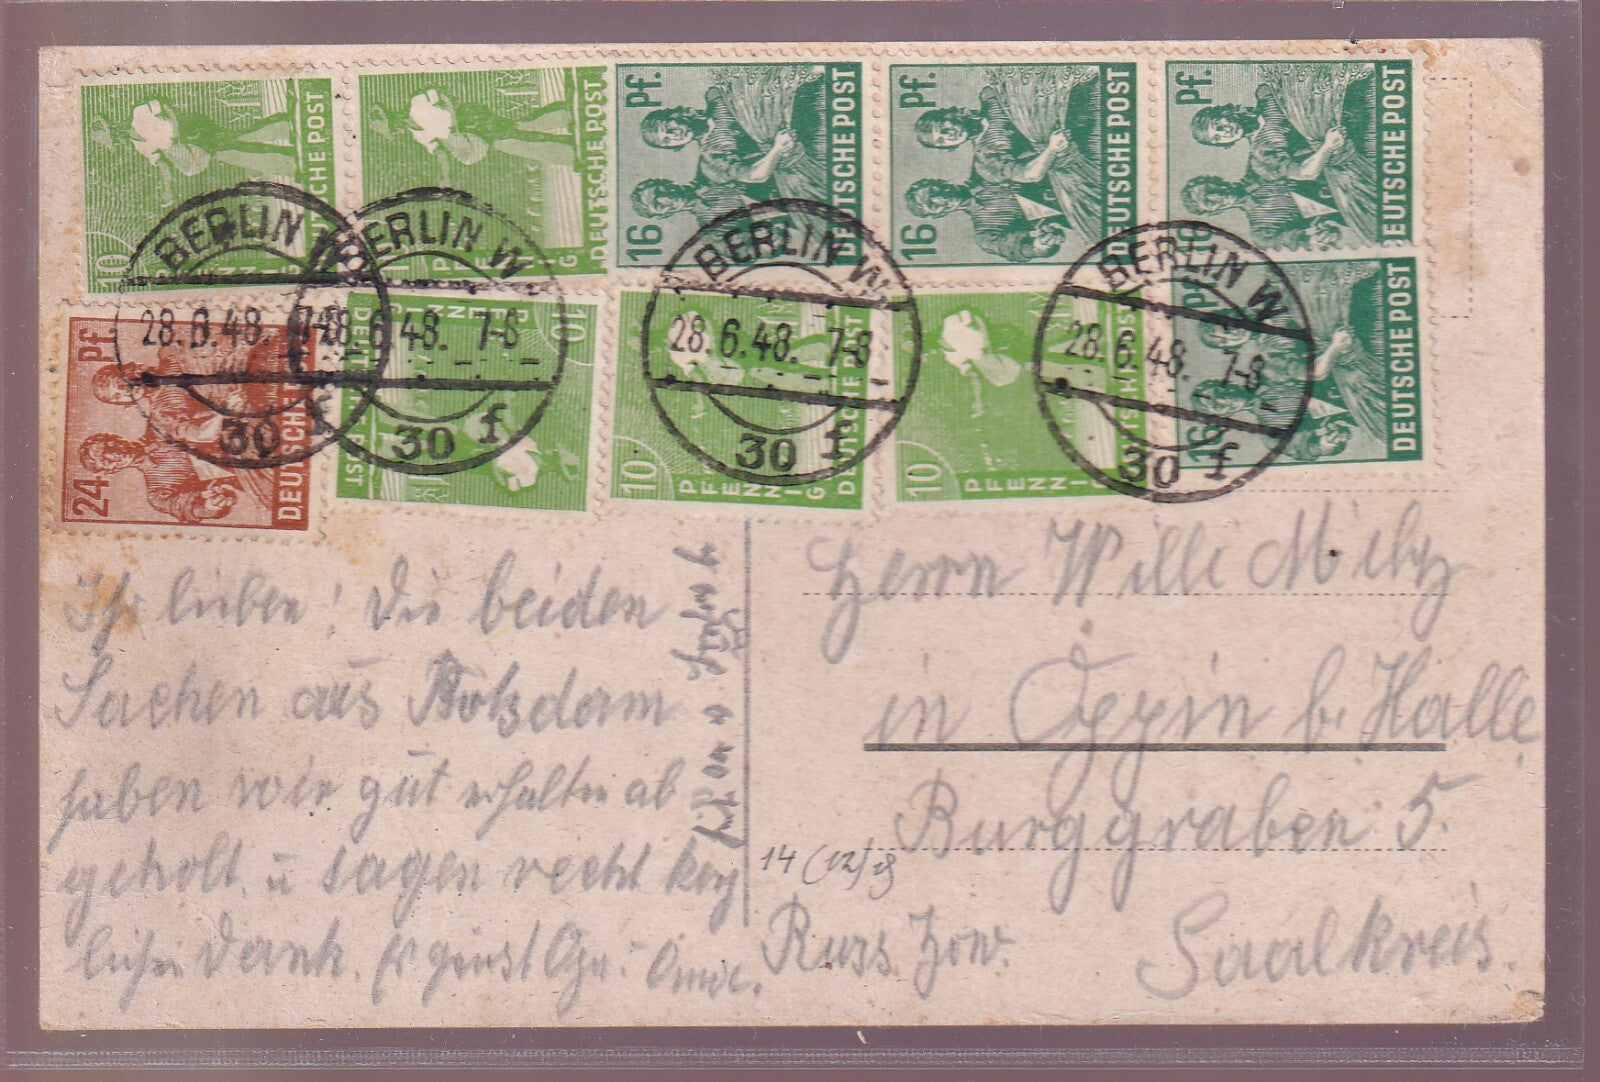 10 PFENNIG DEUTSCHE POST
PFENNIG DEUTSCHE POST
16 Pf. DEUTSCHE POST
16 Pf. DEUTSCHE POST
16 Pf. DEUTSCHE POST
24 Pf. DEUTSCHE
10 PFENNIG DEUTSCHE POST
10 PFENNIG DEUTSCHE POST
10 PFENNIG DEUTSCHE POST
16 Pf. DEUTSCHE POST
BERLIN W
28.6.48. 7-8
30 f
BERLIN W
28.6.48. 7-8
30 f
BERLIN W
28.6.48. 7-8
30 f
BERLIN W
28.6.48. 7-8
30 f
Ihr lieben! Die beiden
Sachen aus Potsdam
haben wir gut erhalten ab
geholt. u sagen recht herz
lichen Dank. Es grüsst
Herrn Willi
in Oppin b. Halle
Burggraben 5.
14 (12)
Russ Zone.
Saalkreis.